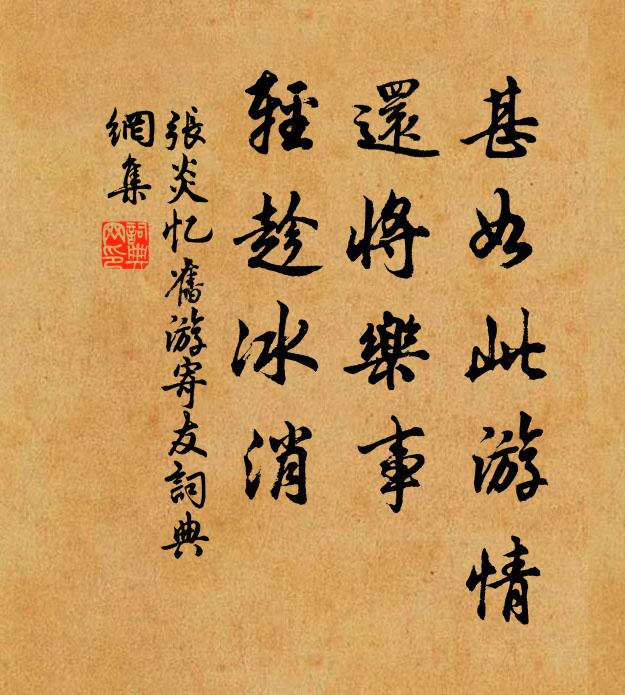 甚如此游情
還將樂事
輕趁冰消
張炎忆舊游寄友詞典
網集
詞典網印